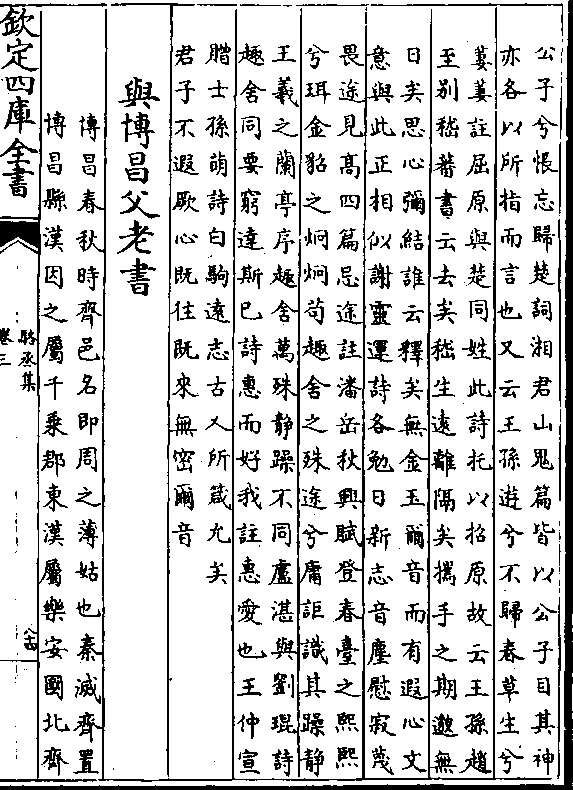 公子兮悵忘歸楚詞湘君山鬼篇皆以公子目其神
亦各以所指而言也又云王孫遊兮不歸春草生兮
萋萋註屈原與楚同姓此詩托以招原故云王孫趙
至别嵇蕃書云去矣嵇生遠離隔矣攜手之期邈無
日矣思心彌結誰云釋矣無金玉爾音而有遐心文
意與此正相似謝靈運詩各勉日新志音塵慰寂蔑
畏途見髙四篇忌途註潘岳秋興賦登春臺之熙熙
兮珥金貂之炯炯苟趣舍之殊途兮庸詎識其躁静
王羲之蘭亭序趣舍萬殊静躁不同盧湛與劉琨詩
趣舍同要窮達斯已詩惠而好我註惠愛也王仲宣
贈士孫萌詩白駒遠志古人所箴允矣
君子不遐厥心既往既來無密爾音
與博昌父老書
博昌春秋時齊邑名即周之薄姑也秦滅齊置
博昌縣漢因之屬千乗郡東漢屬樂安國北齊
欽定四庫全書
駱丞集
卷三